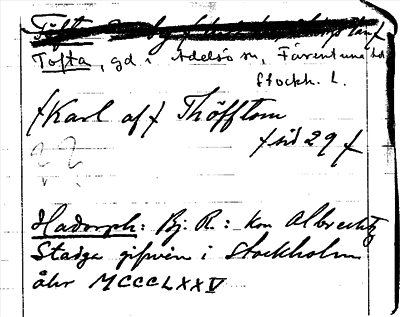 Tofta, gd. i Adelsö sn, Färentuna hd
Stockh. L.
/Karl af/ Thöfftom
/sid 29/
Hadorph: Bj. R.: Kon Albrechtz
Stadga gifwin i Stockholm
åhr MCCCLXXV